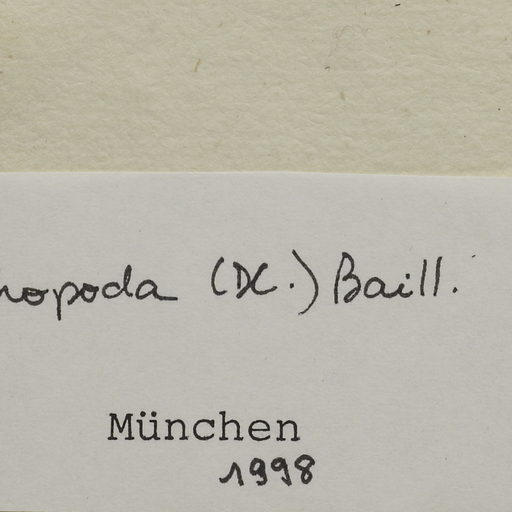 hopoda (DC.) Baill.
München
1998